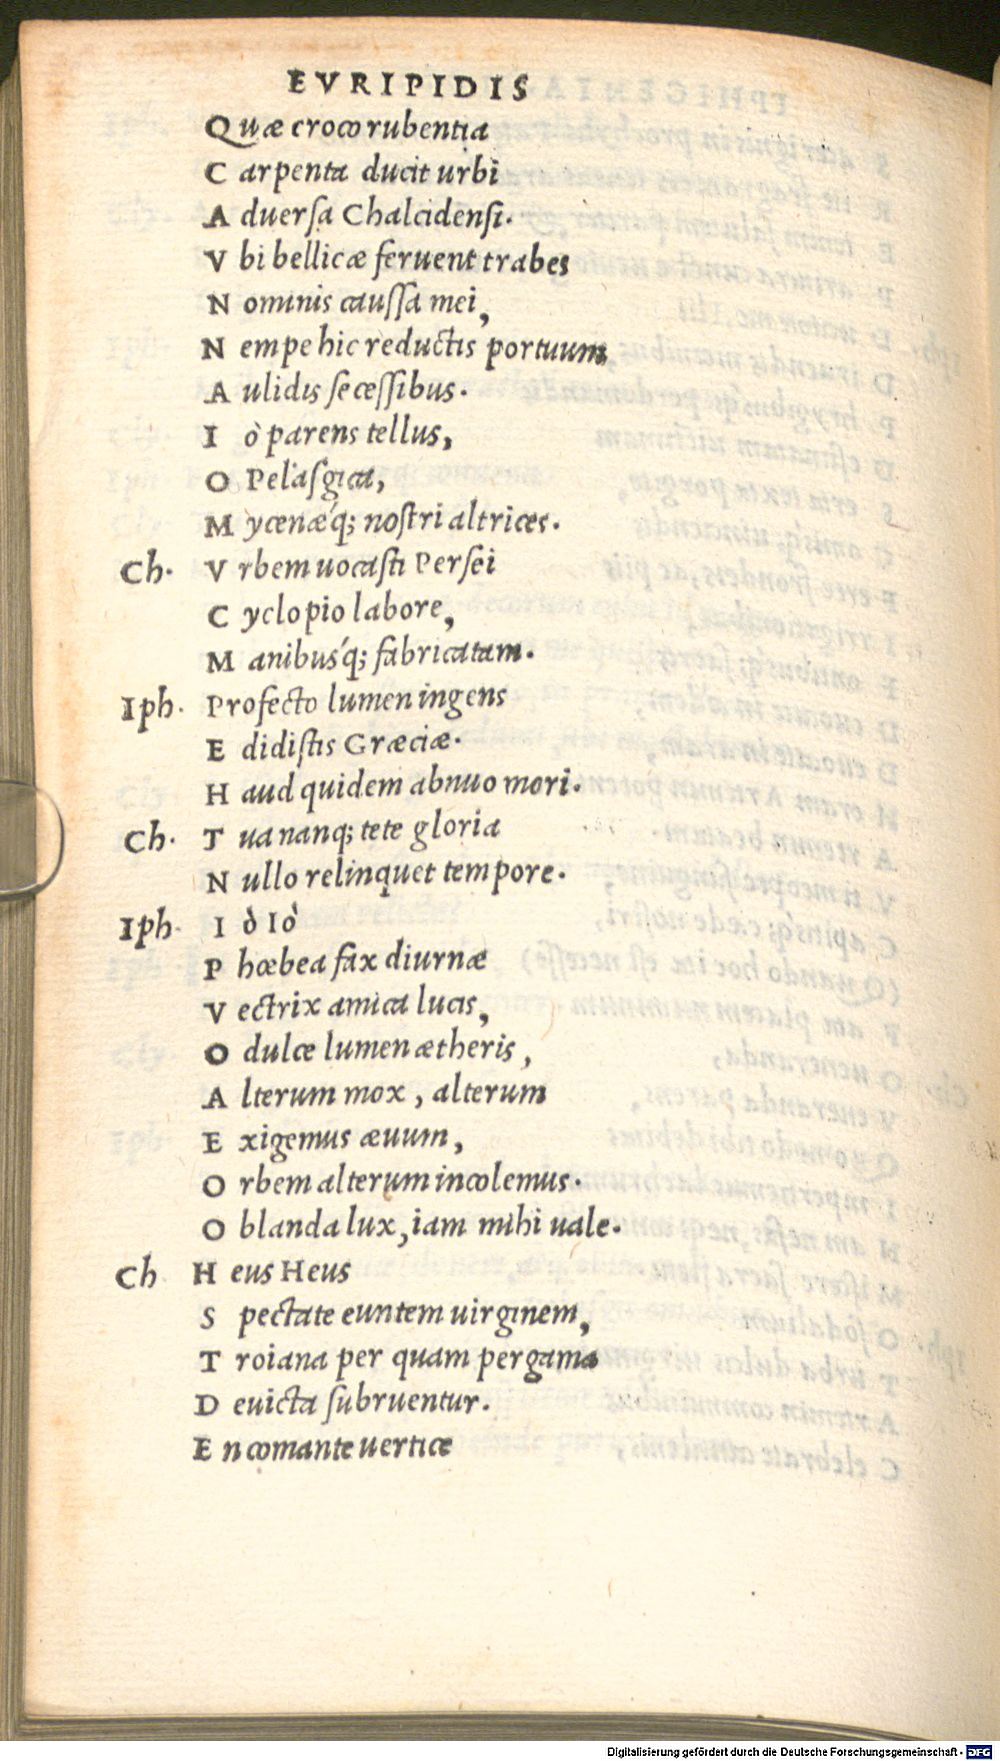 EVRIPIDIS
Quæ croco rubentia
Carpenta ducit urbi
Aduersa Chalcidensi.
Vbi bellicæ feruent trabes
Nominis caussa mei,
Nempe hic reductis portuum
Aulidis secessibus.
Iò parens tellus,
O Pelasgica,
Mycenæq́; nostri altrices.
Ch. Vrbem uocasti Persei
Cyclopio labore,
Manibusq́; fabricatam.
Iph. Profecto lumen ingens
Edidistis Græciæ.
Haud quidem abnuo mori.
Ch. Tua nanq; te te gloria
Nullo relinquet tempore.
Iph. Iò Iò
Phœbea fax diurnæ
Vectrix amica lucis,
O dulce lumen ætheris,
Alterum mox, alterum
Exigemus æuum,
Orbem alterum incolemus.
O blanda lux, iam mihi uale.
Ch Heus Heus
Spectate euntem uirginem,
Troiana per quam pergama
Deuicta subruentur.
En comante uertice
Digitalisierung gefördert durch die Deutsche Forschungsgemeinschaft - DFG